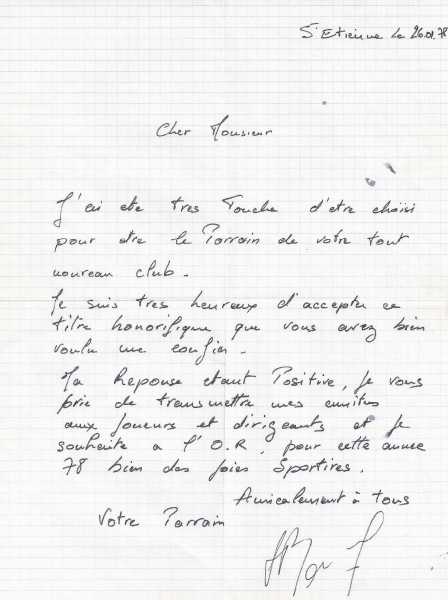 St Etienne le 26.01.78
Cher Monsieur
J'ai ete tres Touche d'etre choisi
pour etre le Parrain de votre tout
nouveau club.
Je suis tres heureux d'accepter ce
titre honorifique que vous avez bien
voulu me confier.
Ma Reponse etant Positive, je vous
prie de transmettre mes amities
aux Joueurs et dirigeants et je
souhaite a l'O.R. pour cette annee
78 bien des joies Sportives.
Amicalement à tous
Votre Parrain